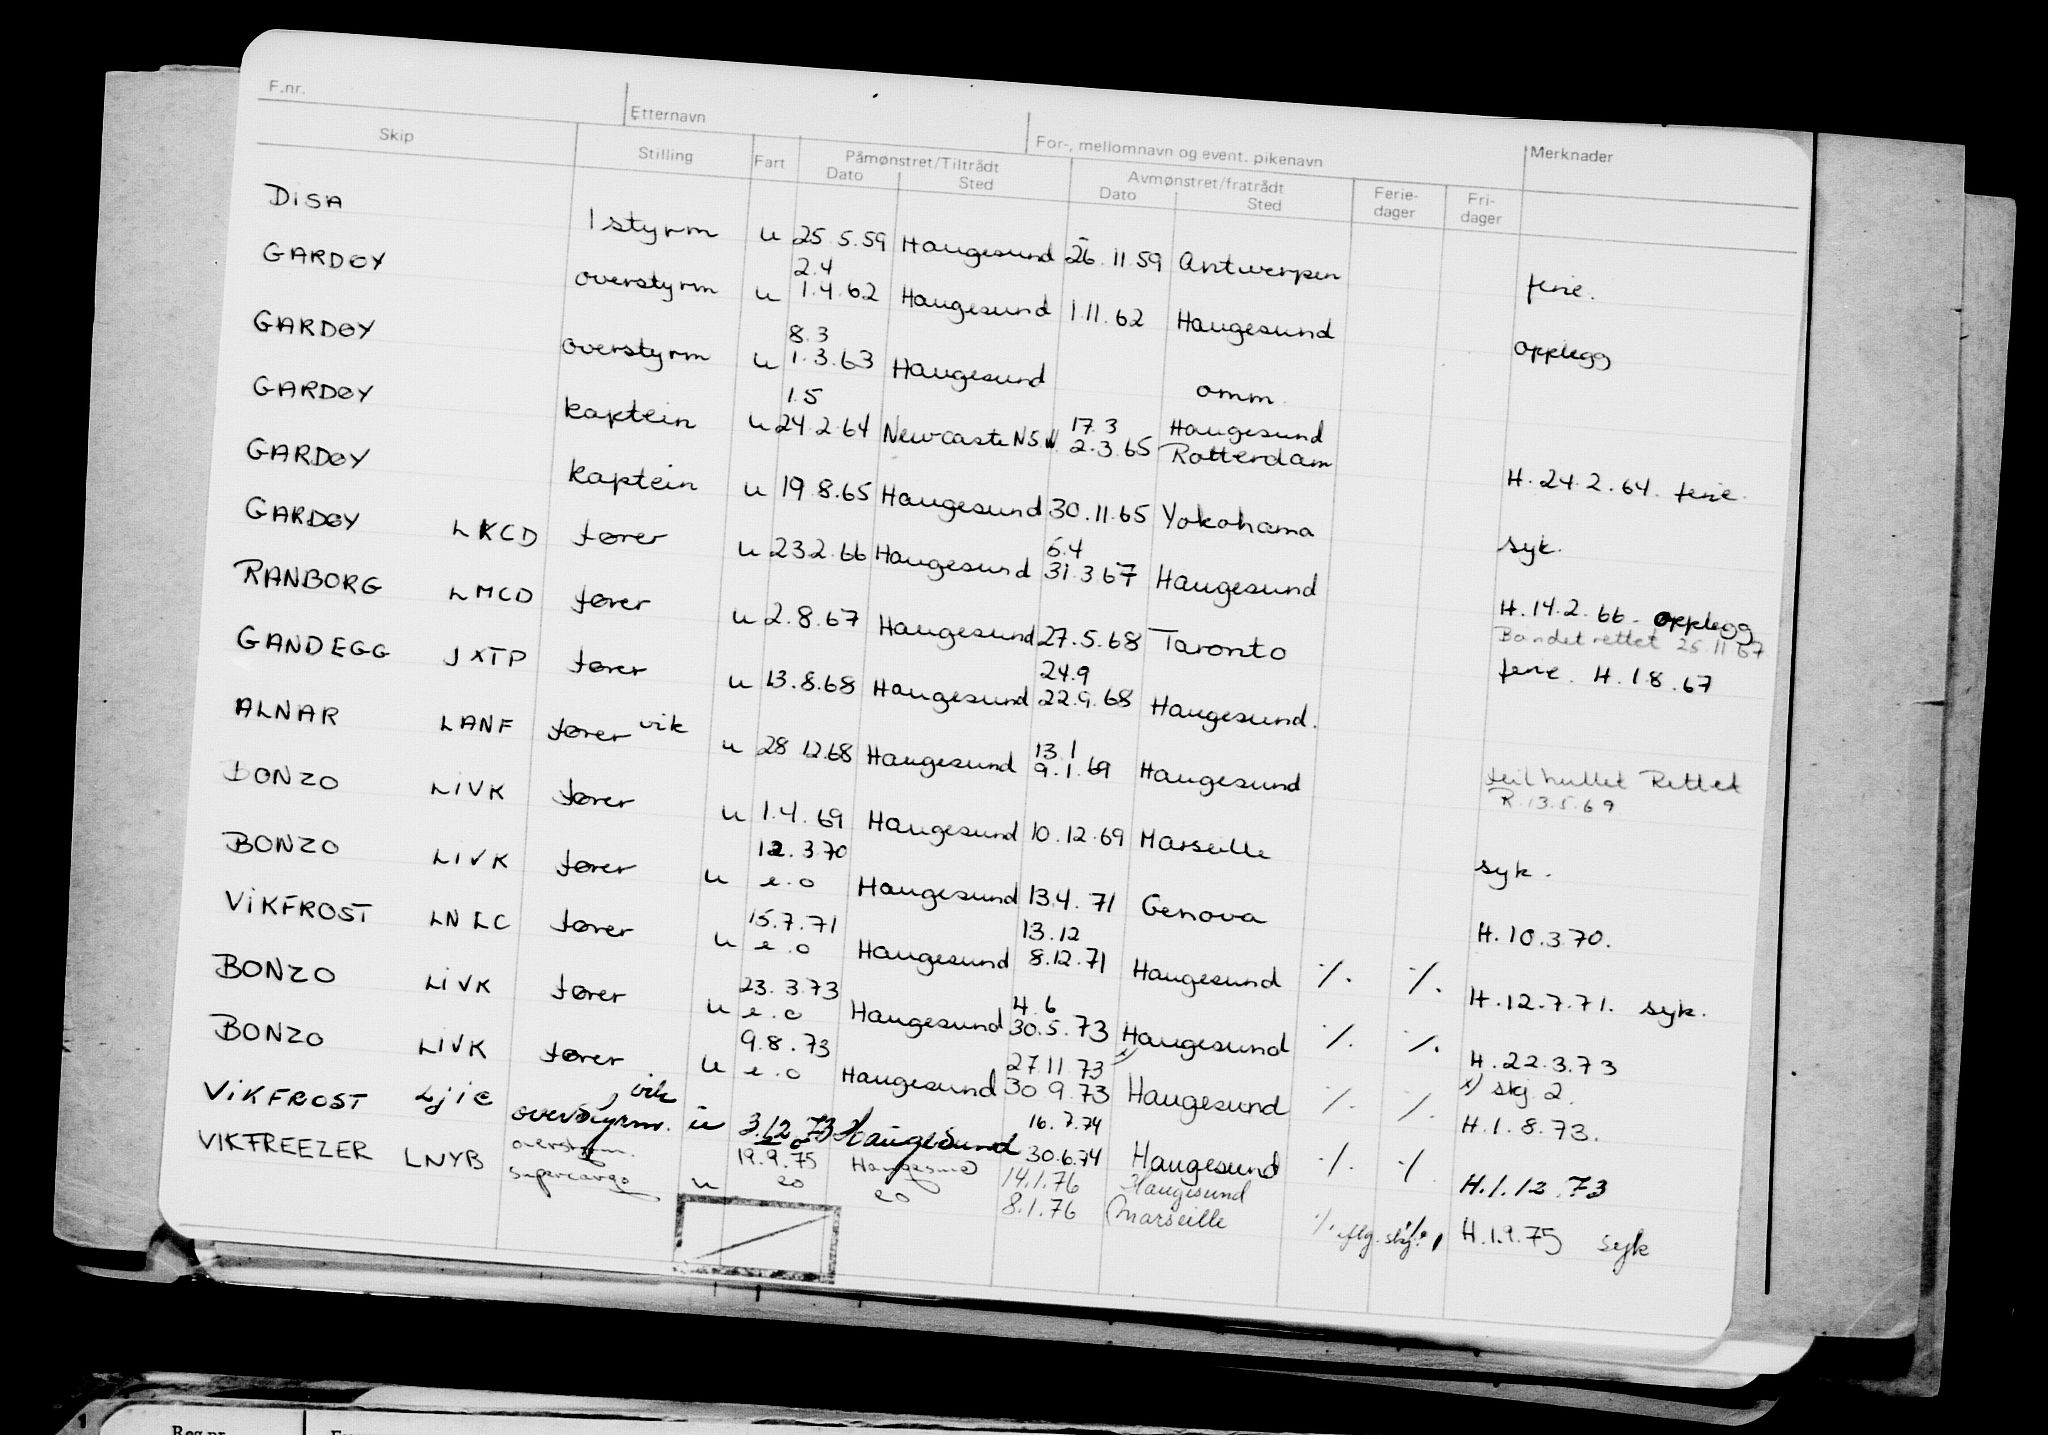 F.nr. Etternavn For-, mellomnavn og event. pikenavn Merknader
Skip Stilling Fart Påmønstret/Tiltrådt Avmønstret/fratrådt Ferie-dager Fri-dager
Dato Sted Dato Sted
DISA 1 styrm u 25.5.59 Haugesund 26.11.59 Antwerpen ferie.
2.4
GARDØY overstyrm u 1.4.62 Haugesund 1.11.62 Haugesund opplegg
8.3
GARDØY overstyrm u 1.3.63 Haugesund omm.
1.5 17.3 Haugesund
GARDØY kaptein u 24.2.64 Newcastle NSW. 2.3.65 Rotterdam H. 24.2.64. ferie.
GARDØY kaptein u 19.8.65 Haugesund 30.11.65 Yokohama syk.
6.4
GARDØY LKCD fører u 23.2.66 Haugesund 31.3.67 Haugesund H. 14.2.66. opplegg
Bandet rettet 25.11.67
RANBORG LMCD fører u 2.8.67 Haugesund 27.5.68 Toronto ferie. H. 1.8.67
24.9
GANDEGG JXTP fører u 13.8.68 Haugesund 22.9.68 Haugesund.
13.1
ALNAR LANF fører vik u 28.12.68 Haugesund 9.1.69 Haugesund feil hullet Rettet
R. 13.5.69
BONZO LIVK fører u 1.4.69 Haugesund 10.12.69 Marseille syk.
12.3.70
BONZO LIVK fører u e.o Haugesund 13.4.71 Genova H. 10.3.70.
15.7.71 13.12
VIKFROST LNLC fører u e.o Haugesund 8.12.71 Haugesund ./. ./. H. 12.7.71. syk.
23.3.73 4.6
BONZO LIVK fører u e.o Haugesund 30.5.73 Haugesund ./. ./. H. 22.3.73
9.8.73 27.11.73 x) x) skj 2.
BONZO LIVK fører u e.o Haugesund 30.9.73 Haugesund ./. ./. H. 1.8.73.
16.7.74
VIKFROST LJIC overstyrm. vik u 3.12.73 Haugesund 30.6.74 Haugesund ./. ./. H. 1.12.73
overstyrm. 19.9.75 Haugesund 14.1.76 Haugesund
VIKFREEZER LNYB supercargo u eo eo 8.1.76 Marseille ./. H. 1.9.75 syk
Reg.nr.